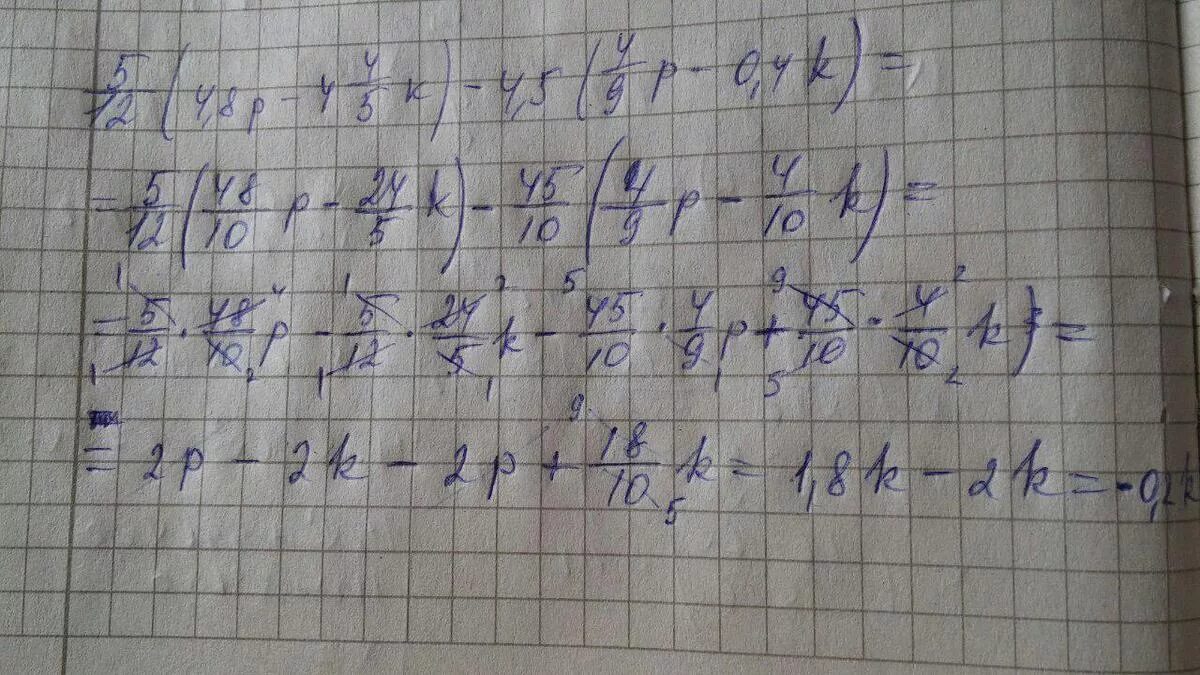 5/12 (4,8p - 4 4/5 k) - 4,5 (4/9 p - 0,4k) =
= 5/12 (48/10 p - 24/5 k) - 45/10 (4/9 p - 4/10 k) =
= 5/12 · 48/10 p - 5/12 · 24/5 k - 45/10 · 4/9 p + 45/10 · 4/10 k =
= 2p - 2k - 2p + 18/10 k = 1,8k - 2k = -0,2k